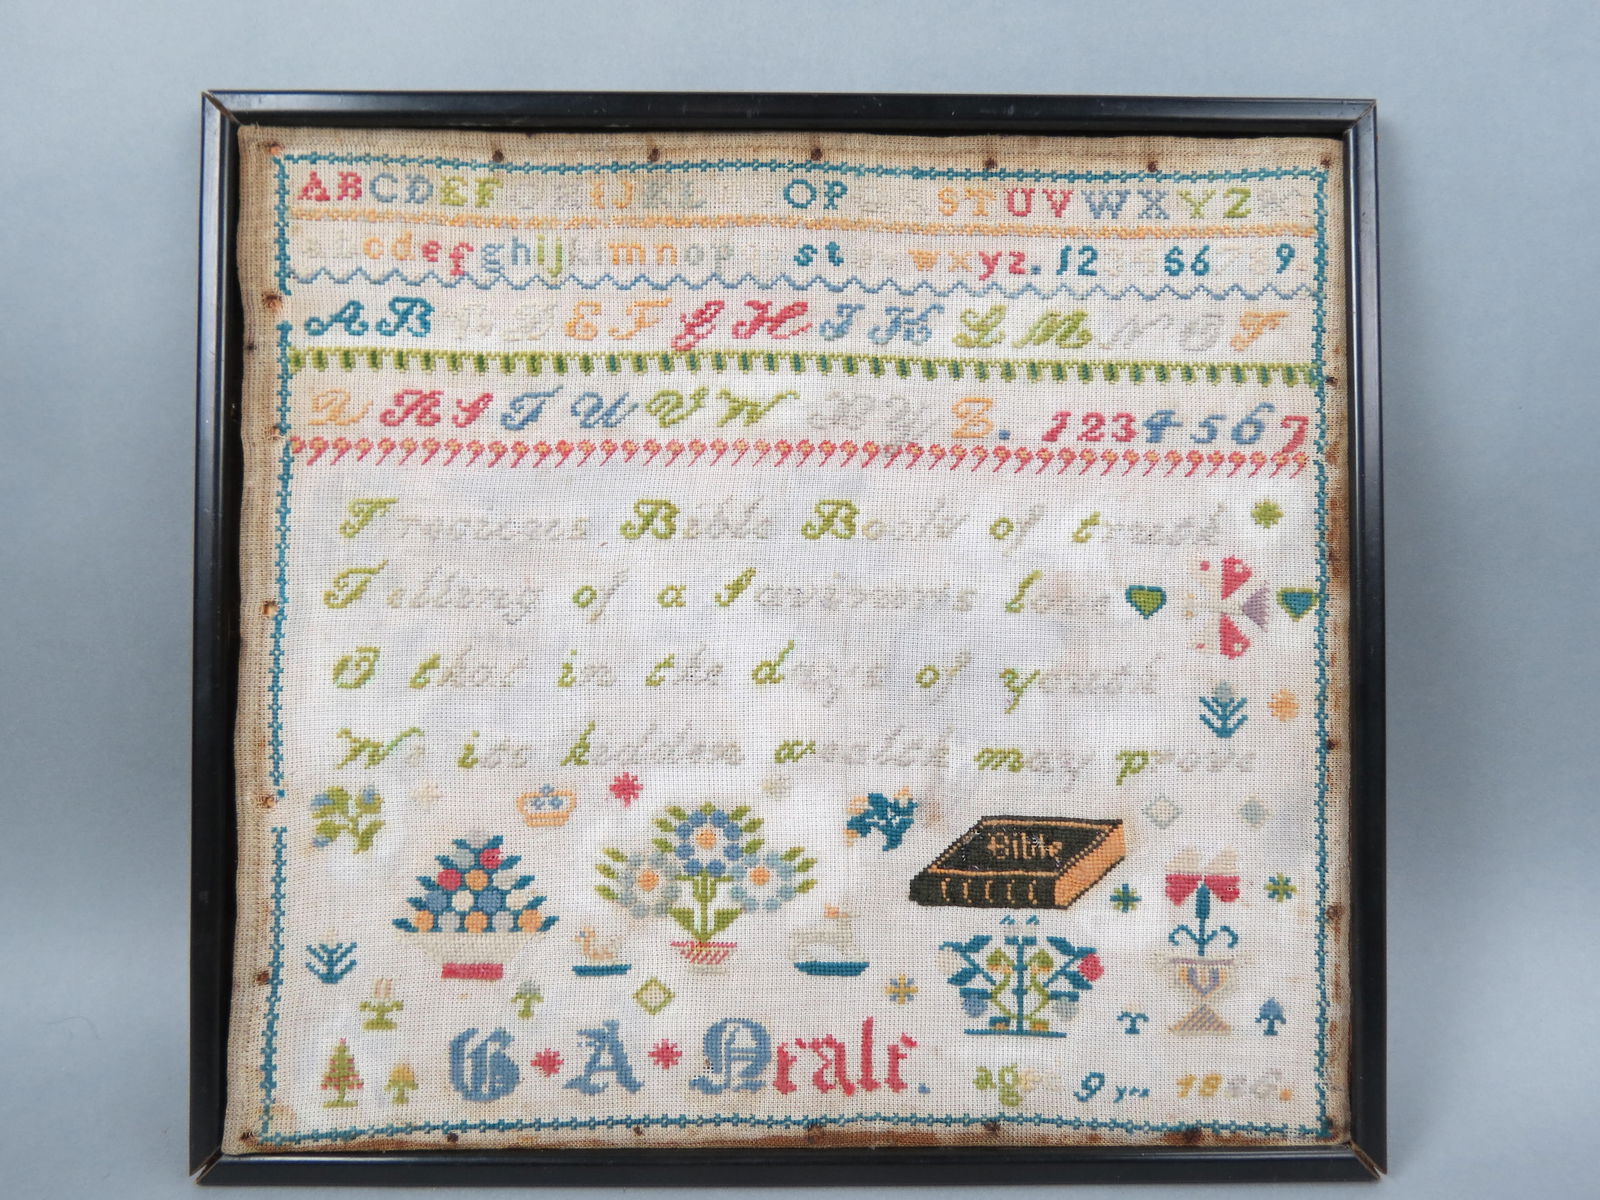 ABCDEF HIJKL OP STUVWXYZ
abcdefghijklmnop st wxyz. 12 66 9
AB C D EFGHIJKLMNOP
QRSTUVWXYZ. 1234567
Precious Bible Book of truth
Telling of a Saviours love
O that in the days of youth
We its hidden wealth may prove
Bible
G A Neale.
aged 9 yrs